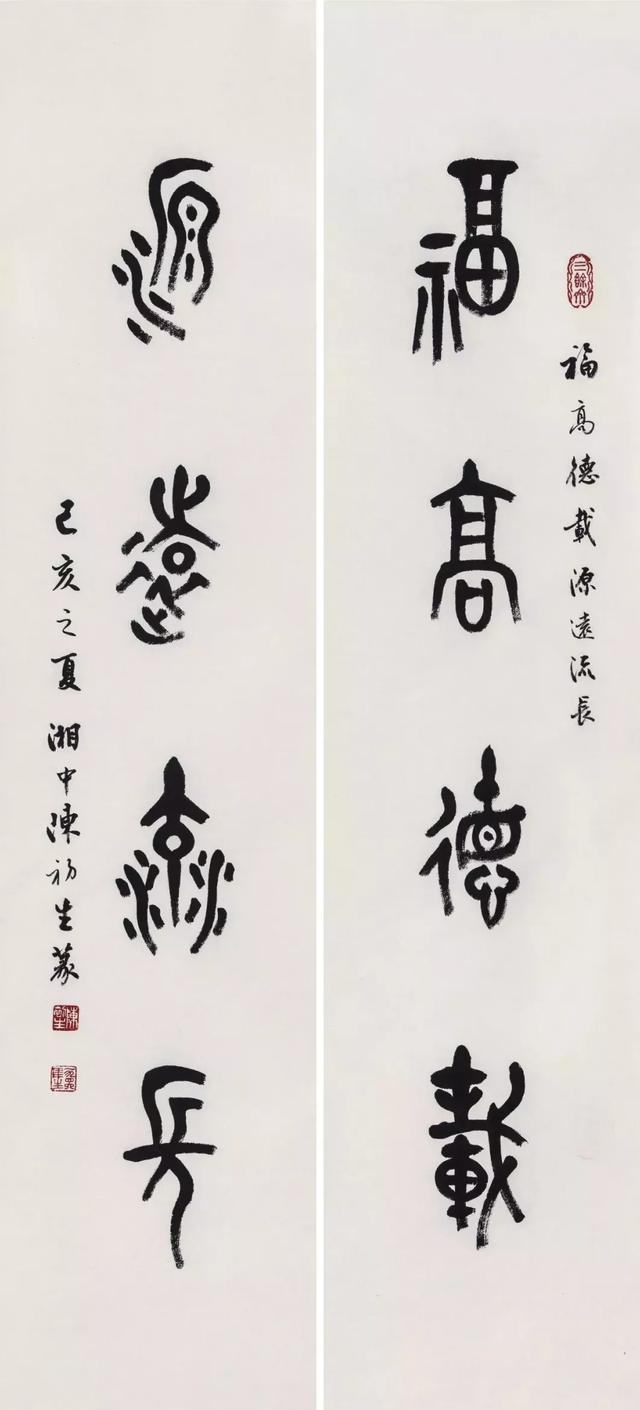 福高德載源遠流長
福高德載
源遠流長
己亥之夏湘中陳初生篆
陳初生